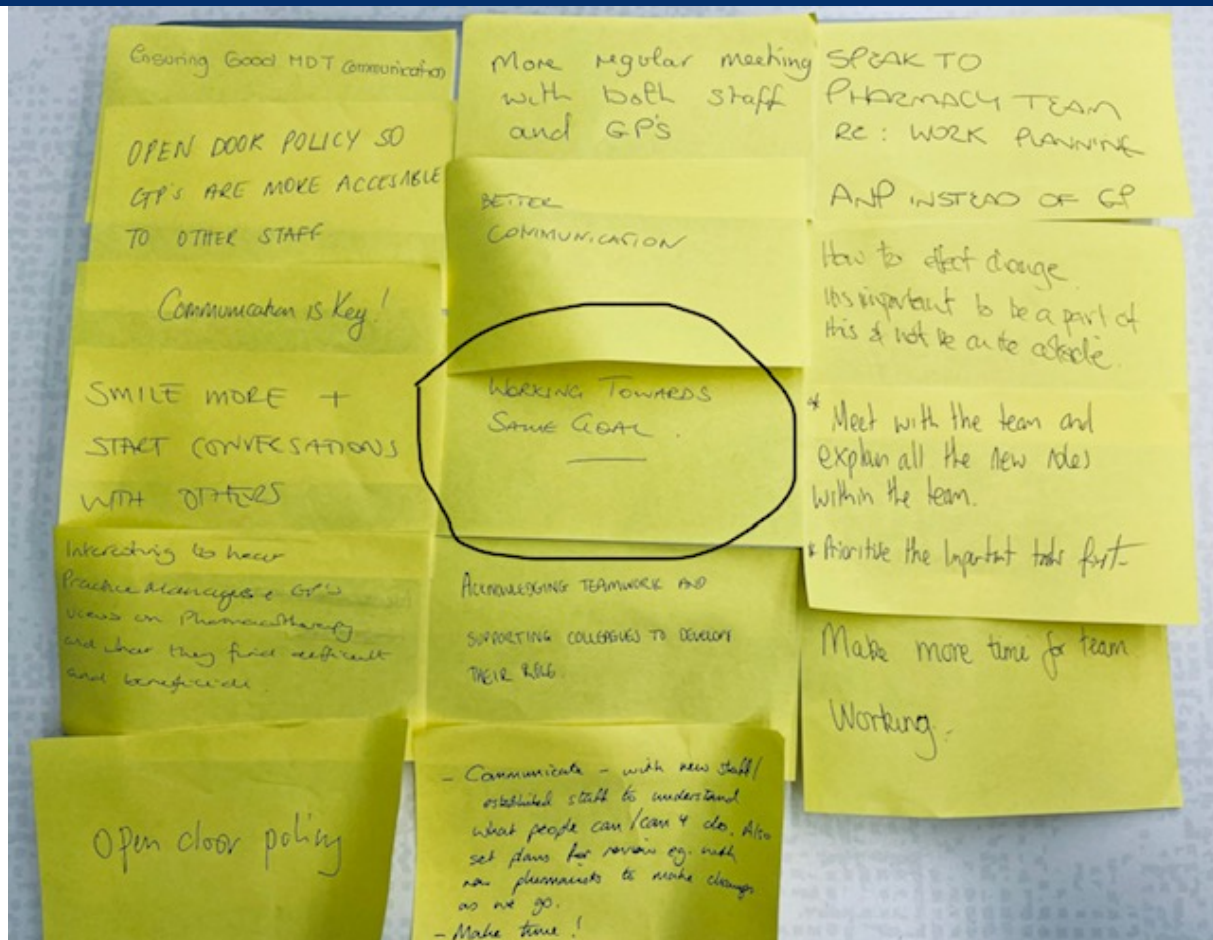 Ensuring Good MDT Communication
OPEN DOOR POLICY SO
GP's ARE MORE ACCESABLE
TO OTHER STAFF
Communication is Key!
SMILE MORE +
START CONVERSATIONS
WITH OTHERS
Interesting to hear
Practice Managers + GP's
views on Pharmacotherapy
and what they find difficult
and beneficial.
Open door policy
More regular meeting
with both staff
and GP's
BETTER
COMMUNICATION
WORKING TOWARDS
SAME GOAL.
ACKNOWLEDGING TEAMWORK AND
SUPPORTING COLLEAGUES TO DEVELOP
THEIR ROLE.
- Communicate - with new staff/
established staff to understand
what people can/can't do. Also
set plans for review eg. with
new pharmacists to make changes
as we go.
- Make time!
SPEAK TO
PHARMACY TEAM
RE: WORK PLANNING
ANP INSTEAD OF GP
How to effect change
its important to be a part of
this & not be on the outside.
* Meet with the team and
explain all the new roles
within the team.
* Prioritise the important tasks first-
Make more time for team
Working.